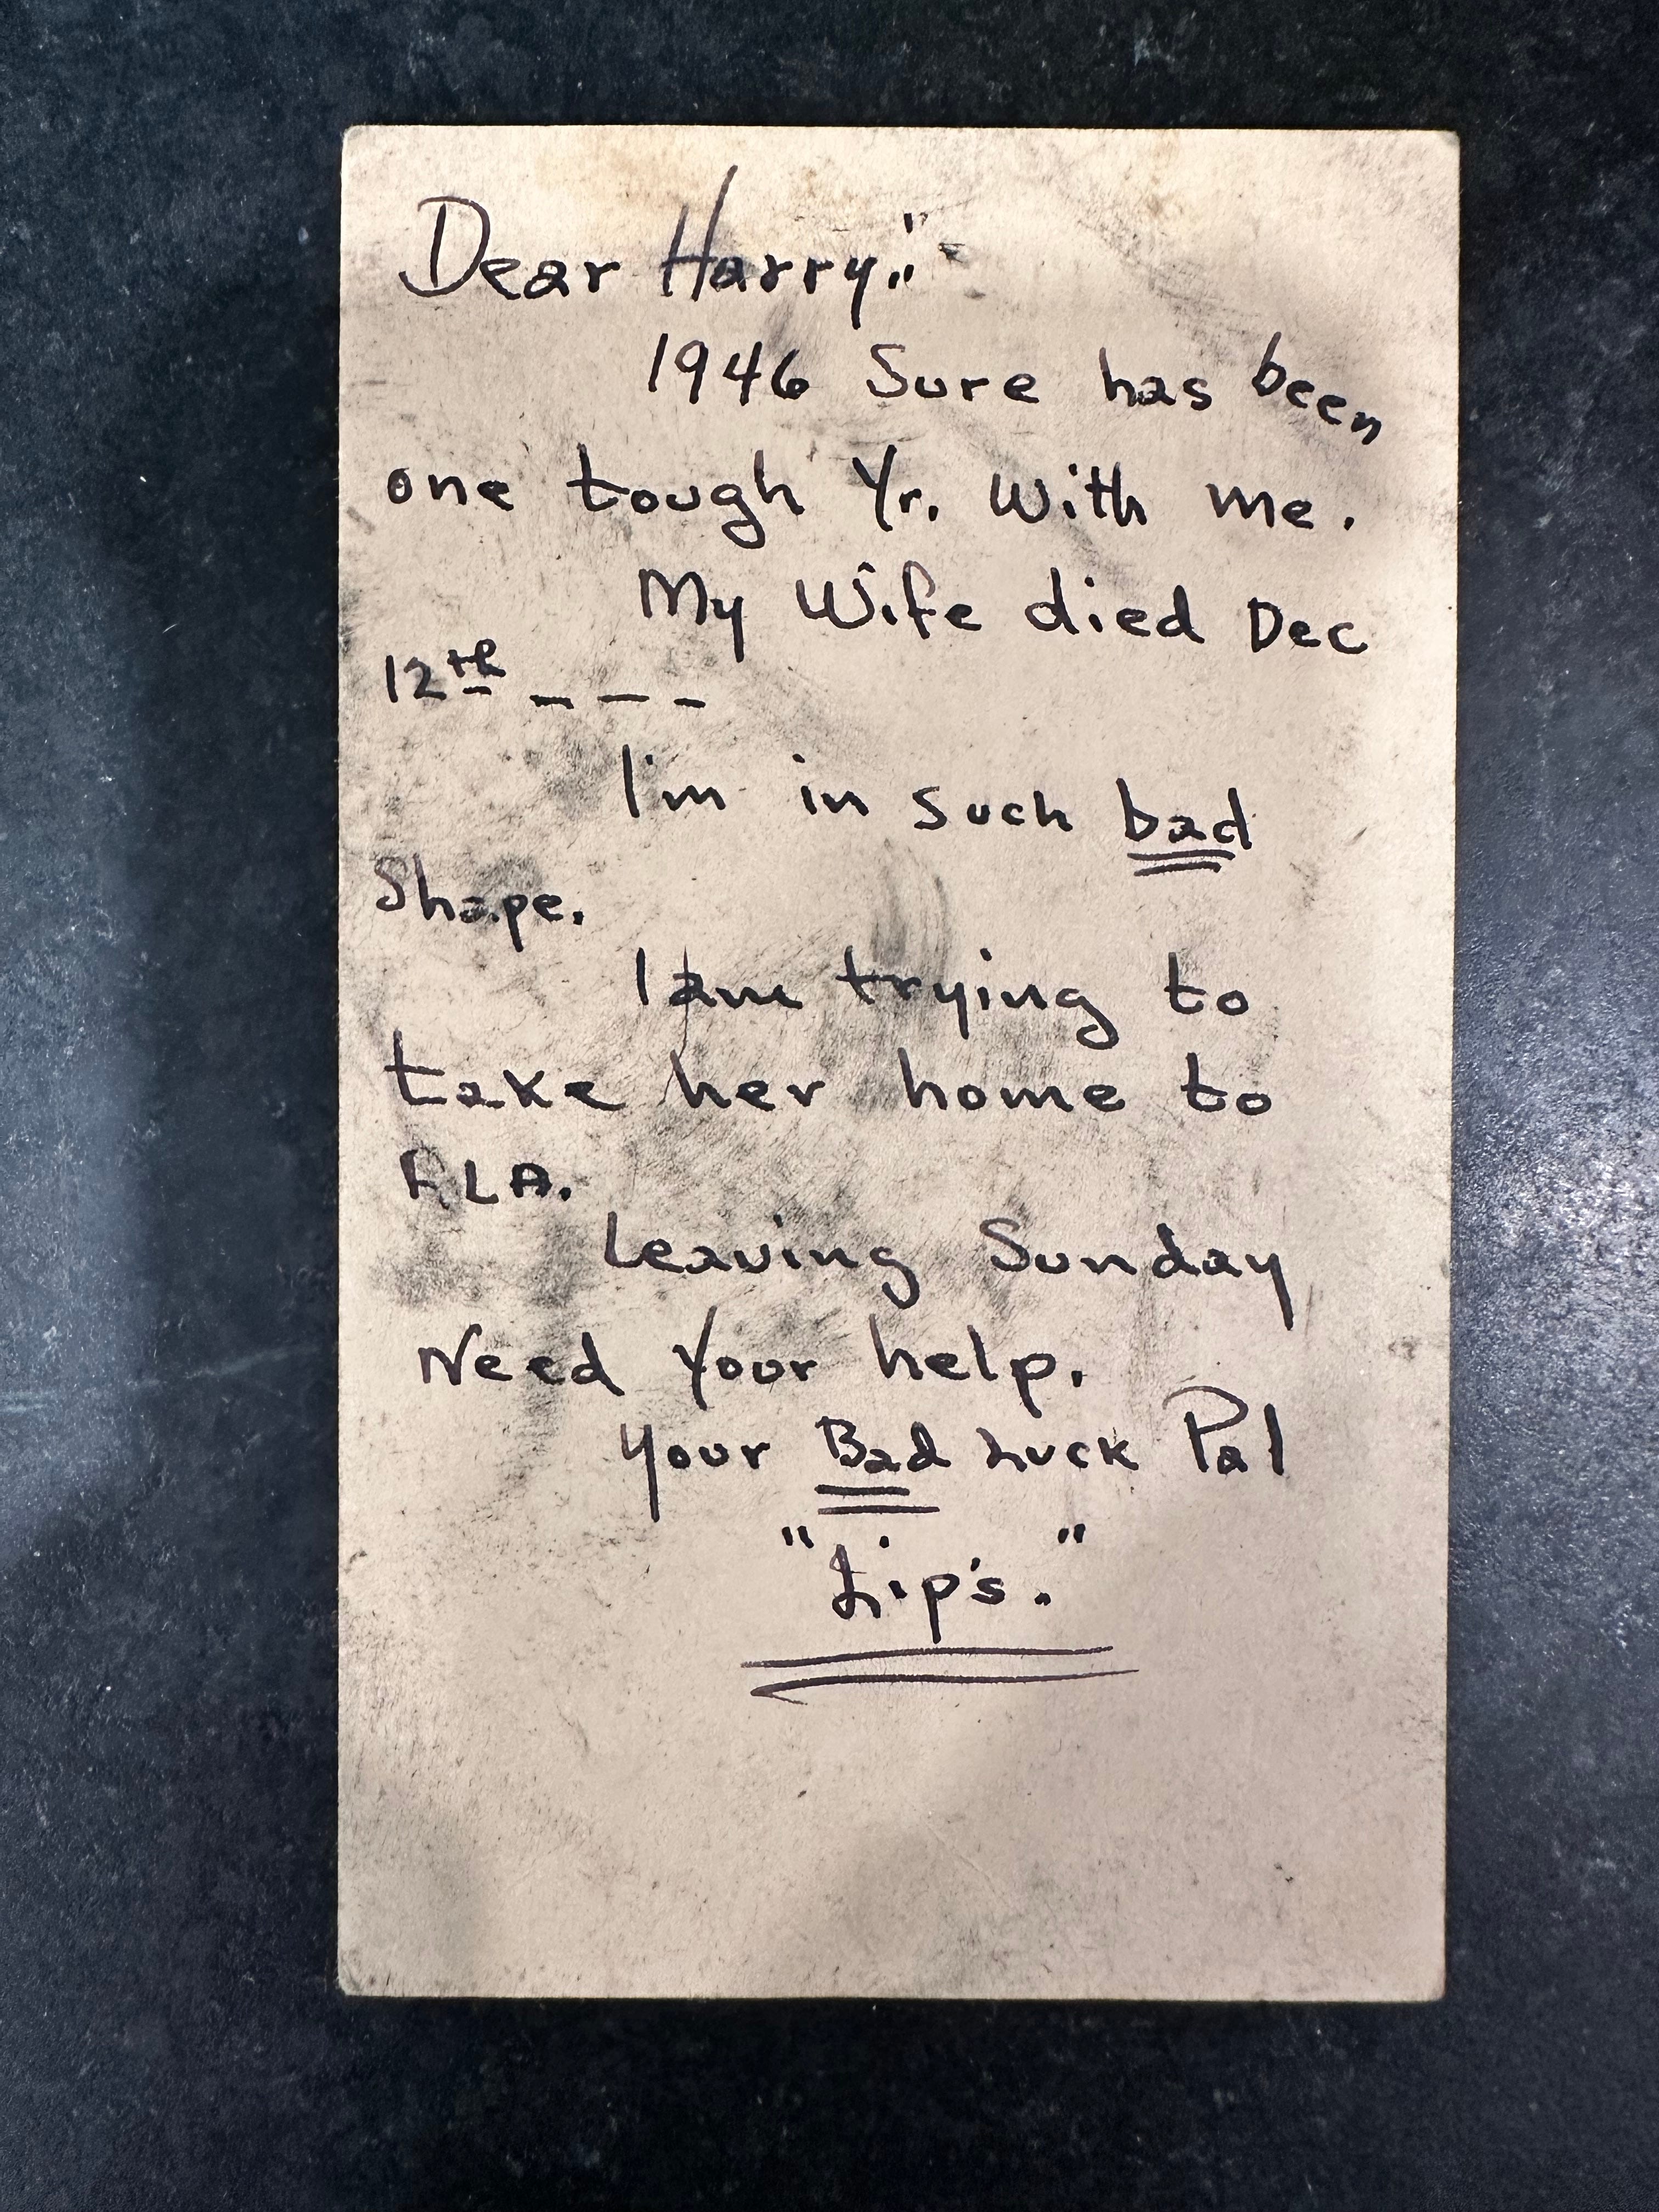 Dear Harry:"
1946 Sure has been
one tough Yr. With me.
My Wife died Dec
12th _ _ _
I'm in such bad
Shape.
I am trying to
take her home to
FLA.
Leaving Sunday
Need Your help.
Your Bad Luck Pal
"Lip's."